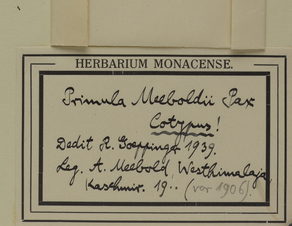 HERBARIUM MONACENSE.
Primula Meeboldii Pax
Cotypus!
Dedit R. Goeppinger 1939.
Leg. A. Meebold, Westhimalaja,
Kaschmir. 19.. (vor 1906).